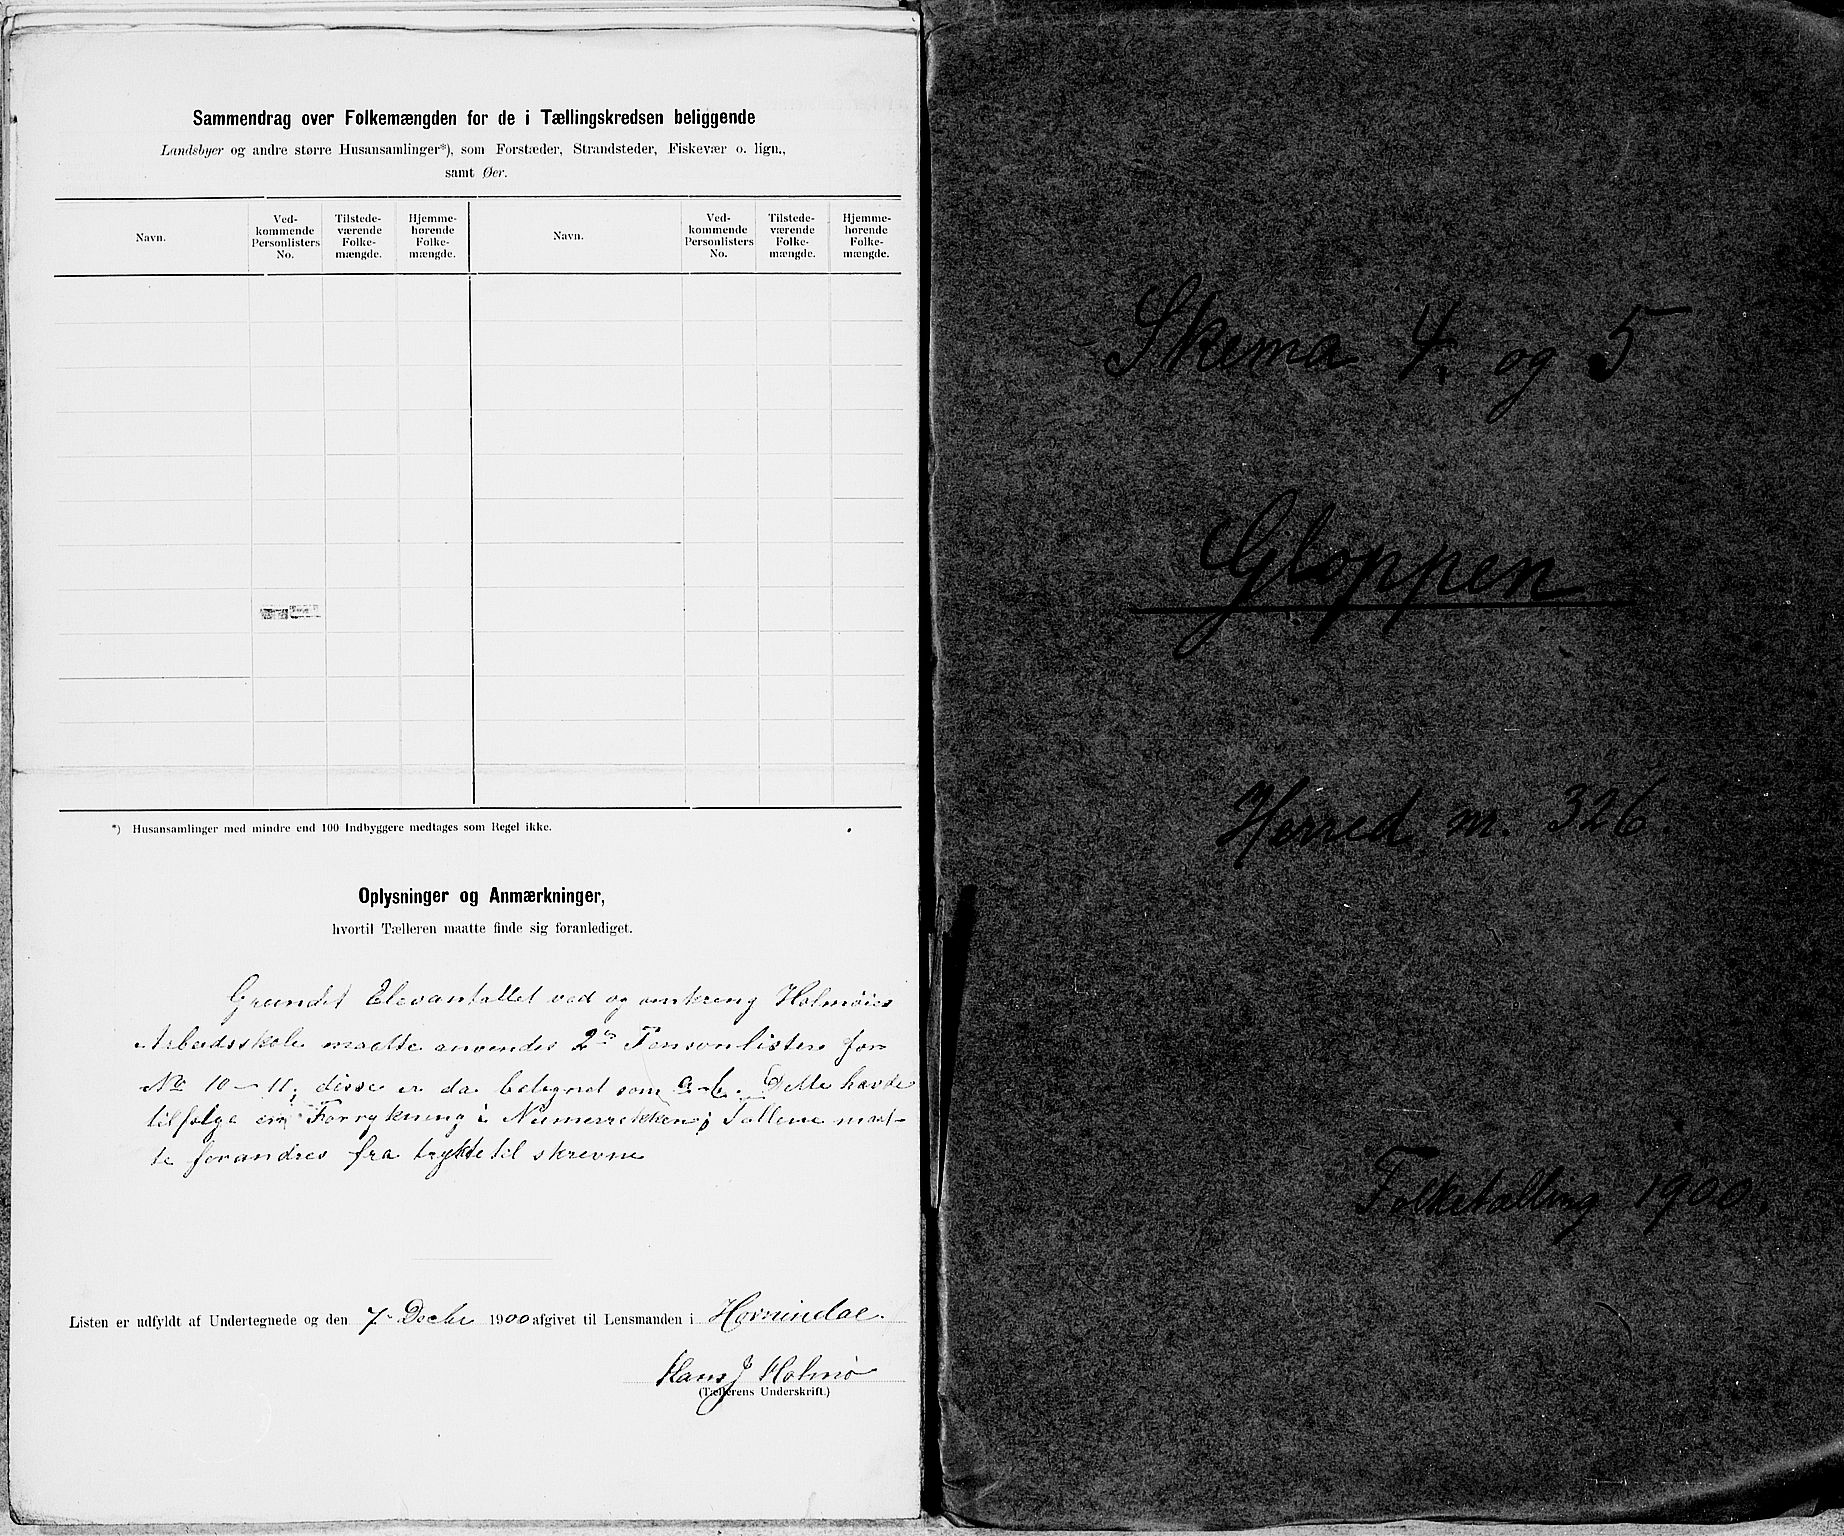 Sammendrag over Folkemængden for de i Tællingskredsen beliggende
Landsbyer og andre større Husansamlinger*), som Forstæder, Strandsteder, Fiskevær o. lign.,
samt Øer.
Navn.
Ved-
kommende
Personlisters
No.
Tilstede-
værende
Folke-
mængde.
Hjemme-
hørende
Folke-
mængde.
Navn.
Ved-
kommende
Personlisters
No.
Tilstede-
værende
Folke-
mængde.
Hjemme-
hørende
Folke-
mængde.
*) Husansamlinger med mindre end 100 Indbyggere medtages som Regel ikke.
Oplysninger og Anmærkninger,
hvortil Tælleren maatte finde sig foranlediget.
Grundet Elevantallet ved og omkring Holmøies
Arbeidsskole maatte anvendes 2de Personlister for
No 10-11; disse er da betegnet som a-b. Dette havde
tilfølge en Forrykning i Numerrekken; Tallene maat-
te forandres fra trykte til skrevne
Listen er udfyldt af Undertegnede og den 7 Decbr 1900 afgivet til Lensmanden i Hornindal.
Hans J Holmø
(Tællerens Underskrift.)
Skema 4. og 5
Gloppen
Herred nr. 326.
Folketælling 1900.